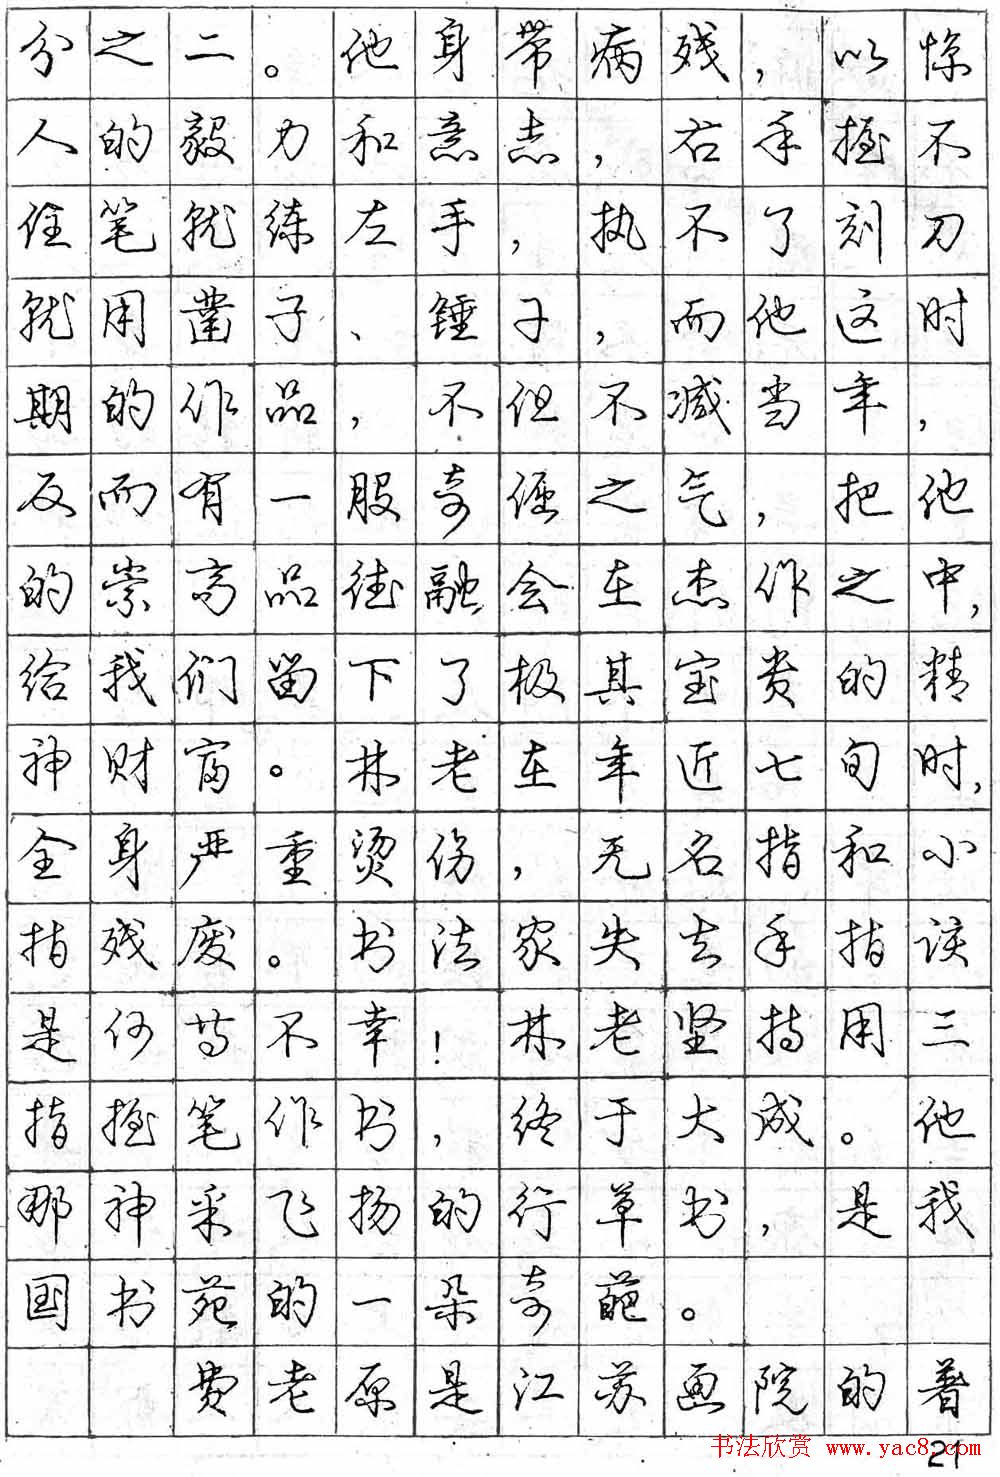 分之二。他身带病残，以惊
人的毅力和意志，右手握不
住笔就练左手，执不了刻刀
就用凿子、锤子，而他这时
期的作品，不但不减当年，
反而有一股奇倔之气，把他
的崇高品德融会在杰作之中，
给我们留下了极其宝贵的精
神财富。林老在年近七旬时，
全身严重烫伤，无名指和小
指残废。书法家失去手指该
是何等不幸！林老坚持用三
指握笔作书，终于大成。他
那神采飞扬的行草书，是我
国书苑的一朵奇葩。
费老原是江苏画院的著
书法欣赏 www.yac8.com
21